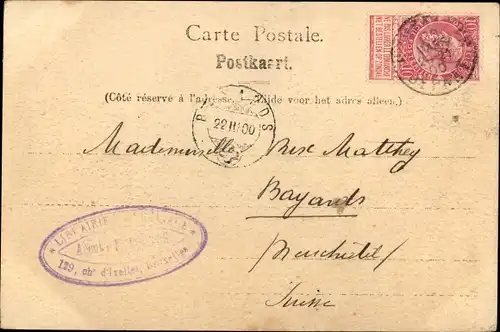 Carte Postale.
Postkaart.
(Côté réservé à l'adresse. Zijde voor het adres alleen.)
22 III 00
Mademoiselle Rose Matthey
Bayards
Neuchâtel
Suisse
LIBRAIRIE
129, ch<sup>ée</sup> d'Ixelles, Bruxelles